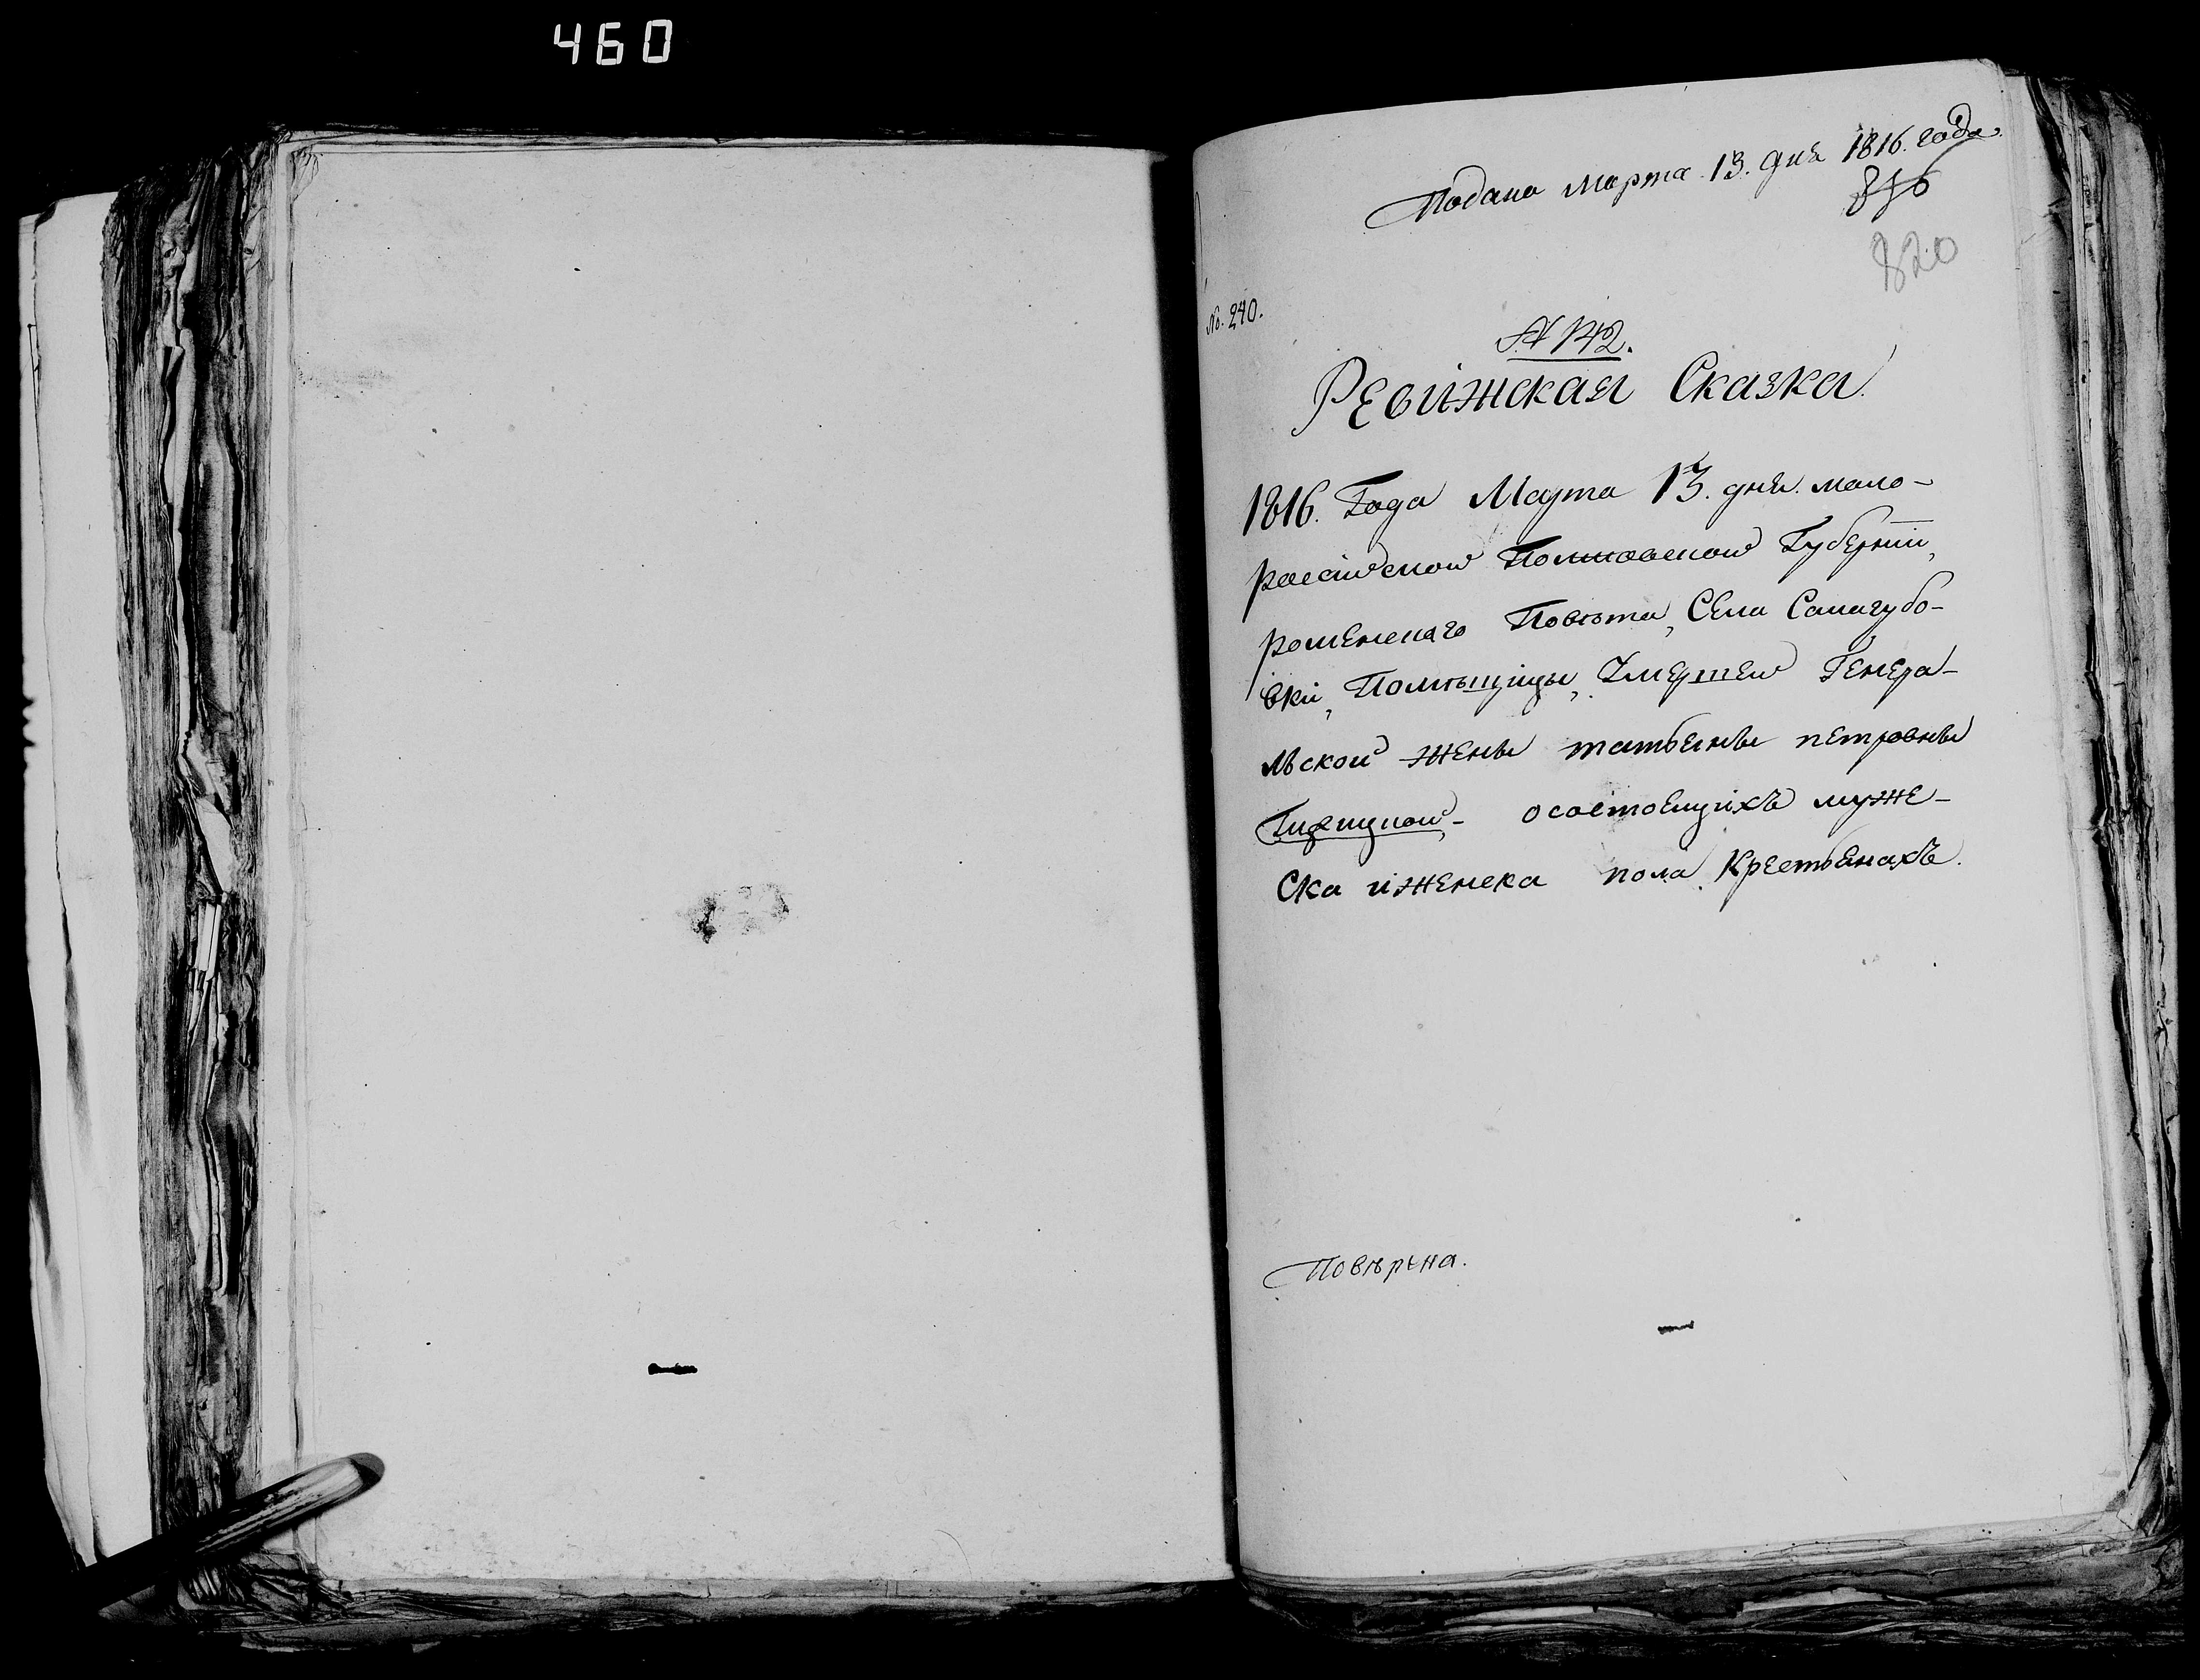 460
Подано Марта 13. дня 1816. года.
816
820
№. 240.
№ 142.
Ревижская Сказка
1816. Года Марта 13. дня. мало-
росийской Полтавской Губернии,
роменскаго Повѣта, Села Самагубо-
вки, Помѣщицы, Умершей Генера-
льской жены татьяны петровны
осостоящихъ муже-
Ска иженска пола Крестьянахъ.
Повѣрена.